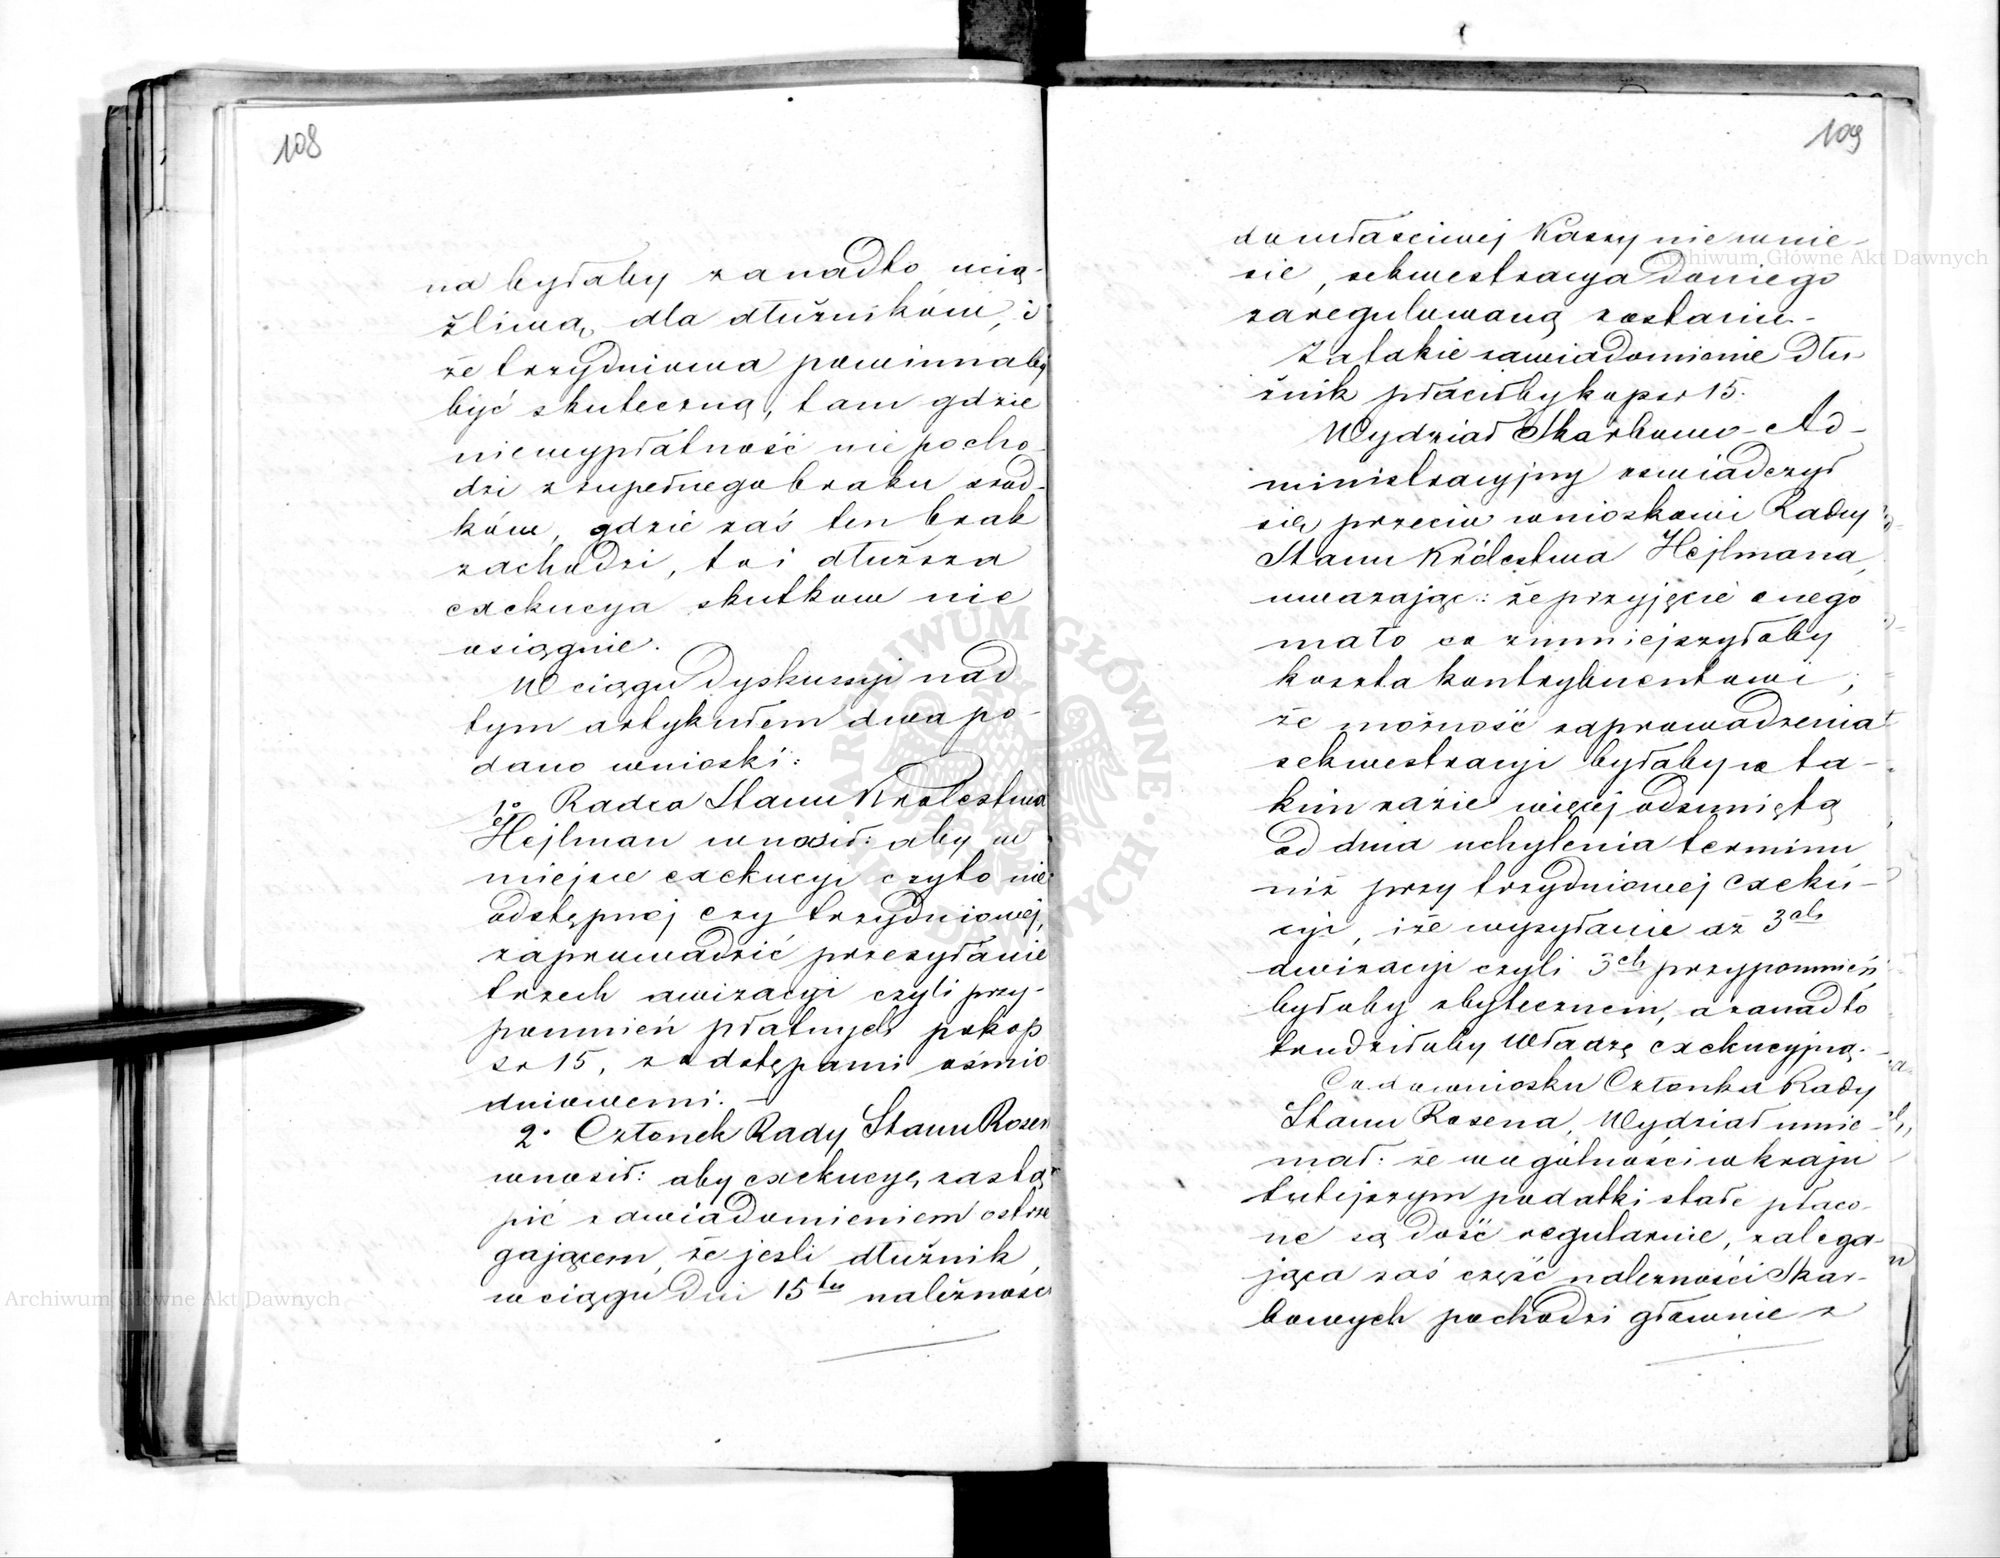 108
na byłaby zanadto ucią-
żliwą, dla dłużników, i
że trzydniowa powinnaby
być skuteczną, tam gdzie
niewypłatność nie pocho-
dzi z zupełnego braku środ-
ków, gdzie zaś ten brak
zachodzi, to i dłuższa
exekucya skutkow nie
osiągnie.
W ciągu dyskussyi nad
tym artykułem dwa po-
dano wnioski:
1º Radca Stanu Królestwa
Hejlman wnosił: aby w
miejsce exekucyi czyto nie
odstępnej czy trzydniowej,
zaprowadzić przesyłanie
trzech awizacyi czyli przy-
pomnień płatnych po kop
sr 15, z odstępami ośmio
dniowemi. —
2º Członek Rady Stanu Rosen
wnosił: aby exekucyę zastą
pić zawiadomieniem ostrze
gającem, że jeśli dłużnik,
w ciągu dni 15tu należności
109
do właściwej Kassy nie wnie-
sie, sekwestracya do niego
zaregulowaną zostanie.-
Za takie zawiadomienie dłu-
żnik płaciłby kop sr 15.
Wydział Skarbowo-Ad-
ministracyjny oświadczył
się, przeciw wnioskowi Radcy
Stanu Królestwa Hejlmana,
uważając: że przyjęcie onego
mało co zmniejszyłoby
koszta kontrybuentowi;
że możność zaprowadzenia
sekwestracyi byłaby w ta-
kim razie więcej odsuniętą
od dnia uchylenia terminu
niż przy trzydniowej exeku-
cyi, i że wysyłanie aż 3ch
awizacyi czyli 3ch przypomnień
byłoby zbytecznem, a zanadto
trudziłoby Władzę exekucyjną.
Co do wniosku Członka Rady
Stanu Rosena, Wydział mnie-
mał: że w ogólności w kraju
tutejszym podatki stałe płaco-
ne są dość regularnie, zalega-
jąca zaś część należności Skar-
bowych pochodzi głównie z
Archiwum Główne Akt Dawnych
Archiwum Główne Akt Dawnych
ARCHIWUM GŁÓWNE AKT DAWNYCH